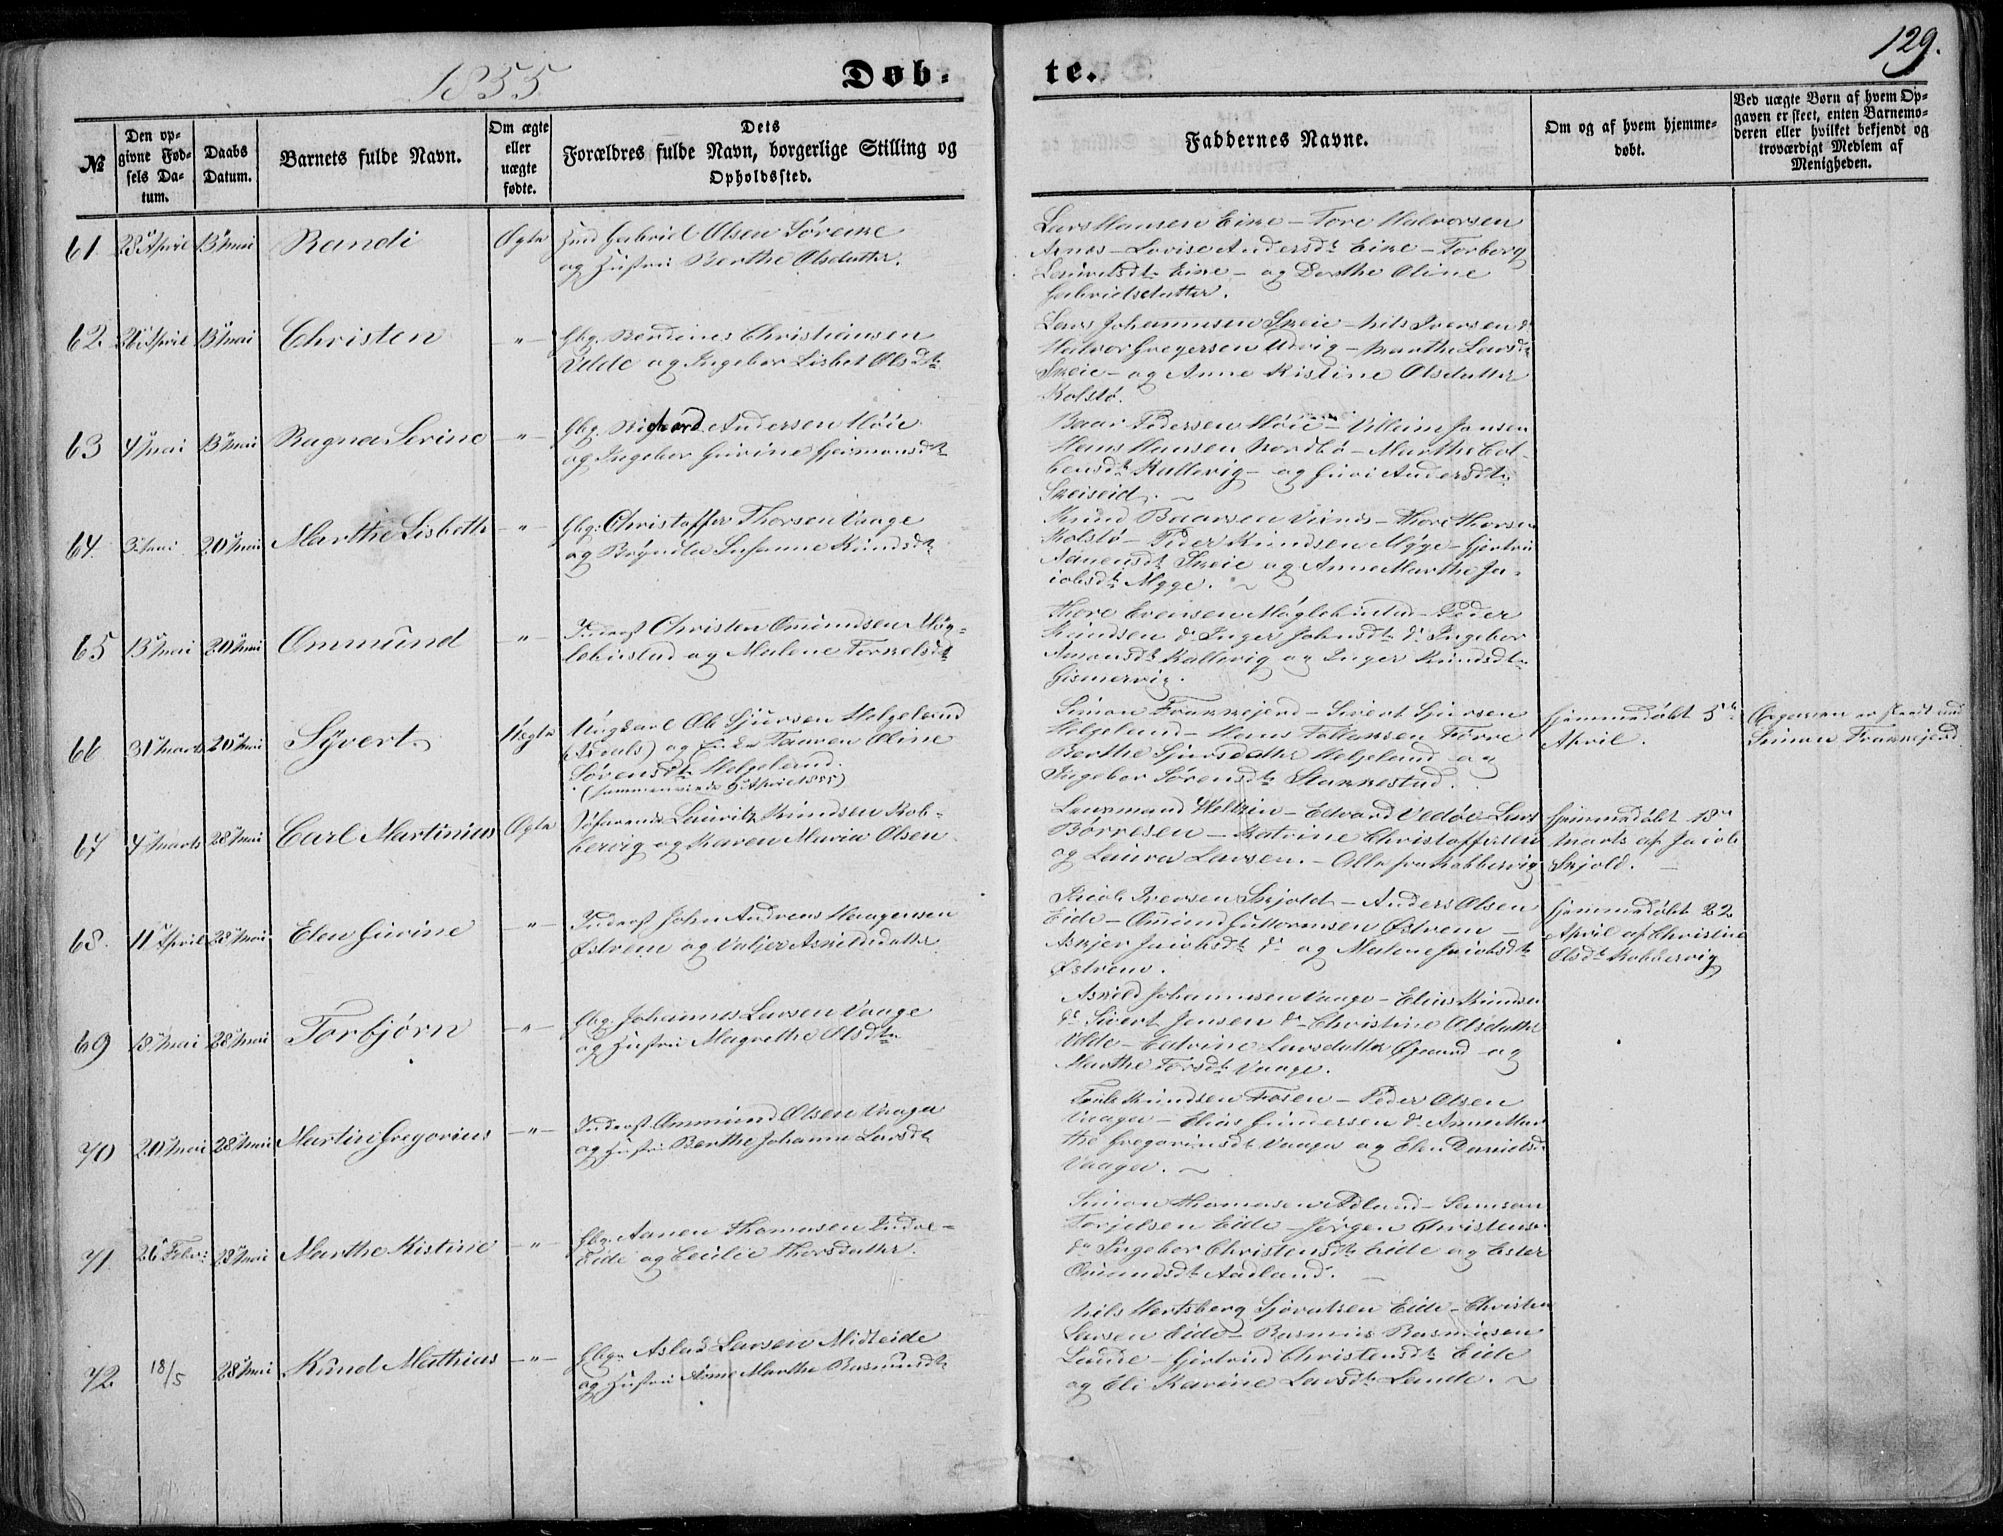 1855
Døb-
te.
129.
№
Den op-
givne Fød-
sels Da-
tum.
Daabs
Datum.
Barnets fulde Navn.
Om ægte
eller
uægte
fødte.
Dets
Forældres fulde Navn, borgerlige Stilling og
Opholdssted.
Faddernes Navne.
Om og af hvem hjemme-
døbt.
Ved uægte Børn af hvem Op-
gaven er skeet, enten Barnemo-
deren eller hvilket bekjendt og
troværdigt Medlem af
Menigheden.
61
23 April
13 Mai
Randi
Ægte
Gabriel Olsen Søreike
og Hustru Berthe Olsdatter.
Lars Hansen Eike – Tore Halvorsen
Arnes – Lovise Andersdt Eike – Torborg
Eike – og Dorthe Oline
Gabrielsdatter.
62
April
13 Mai
Christen
"
Gbg. Berdines Christiansen
Udde og Ingebor Lisbet Olsdtr
Lars Johannesen Skeie – Nils Iversen do
Halvor Gregersen Udvig – Marthe Larsdt
Skeie – og Anne Kistine Olsdatter
Kolstø.
63
4 Mai
13 Mai
Ragna Serine
"
Gbg. Richard Andersen Høie
og Ingebor Gurine Geirmonsdt
Baar Pedersen Høie – Villum Jansen
Hans Hansen Nordbø – Marthe Col-
bensdt Kallevig – og Guri Andersdt
Skeiseid.
64
3 Mai
20 Mai
Marthe Lisbeth
"
Gbg: Christoffer Thorsen Vaage
og Brynild Susanne Knudsdt
Knud Baarsen – Thore Thorsen
Kolstø – Peder Knudsen Myge – Gjertru
Aanensdt Skeie og Anne Marthe Ja-
cobsdt Mygge.
65
13 Mai
20 Mai
Ommund
"
Inderst Christen Omundsen Møg-
lebustad og Malene Torkelsdt
Thore Evensen Møglebustad – Peder
Knudsen do Inger Johnsdt do Ingebor
Amonsdt Kallevig og Inger Knudsdt
Gismervig.
66
31 Marts
20 Mai
Syvert
Uægte
Ungkarl Ole Sjursen Helgeland
og Taaren Oline
Sørensdt Helgeland.
Simon Frankejerd – Sivert Sjursen
Helgeland – Hans Tollaksen Førre
Berthe Sjursdatter Helgeland og
Ingebor Sørensdt Stakkestad.
Hjemmedøbt 5te
April.
Opgaven er skeedt ved
Simon Frankejerd.
67
4 Marts
28 Mai
Carl Martinius
Ægte
Søfarende Lauritz Knudsen Kob-
bervig og Karen Maria Olsen
Lensmand Weltzin – Edvard Vedøe – Lars
Børresen – Katrine Christoffersen
og Laura Larsen. – Alle fra Kobbervig
Hjemmedøbt 18de
Marts af Jacob
Skjold.
68.
11 April
28 Mai
Elen Gurine
"
Inderst John Andreas Haagensen
Østrem og Valjer Asrieldsdatter
Jacob Iversen Skjold – Anders Olsen
Eide – Omund Guttormsen Østrem –
Askjer Jacobsdt do og Malene Jacobsdt
Østrem.
Hjemmedøbt 22
April af Christine
Olsdt Kobbervig
69
13 Mai
28 Mai
Torbjørn
"
Gbg. Johannes Larsen Vaage
og Hustru Magrethe Olsdtr
Askild Johannesen Vaage – Elias Knudsen
do Sivert Jensen do Christine Olsdatter
Udde – Larsdatter Øgaard og
Marthe Torsdt Vaage.
70
20 Mai
28 Mai
Martin Gregorius
"
Inderst Ommund Olsen Vaage
og Hustru Berthe Johanne Larsdt
Knudsen Fosen – Peder Olsen
Vaage – Elias Gundersen do Anne Mar-
the Gregoriusdt Vaage og Elen Danielsdt
Vaage.
71.
26 Febr:
28 Mai
Marthe Kistine
"
Gbg. Aanen Thomasen Indre-
Eide og Cecilie Thorsdatter.
Simon Thomasen Adland – Samson
Torjelsen Eide – Jørgen Christens.
do Ingebor Christensdt Eide og Ester
Omundsdt Aadland.
72
18/5
28 Mai
Knud Mathias
"
Gbg. Aslad Larsen Midteide
og Hustru Anne Marthe Rasmusdt
Nils Hertsberg Sjovatsen Eide – Christen
Larsen Eide – Rasmus Rasmusen
Lande – Gjertrud Christensdt Eide
og Eli Karine Larsdt Lande.